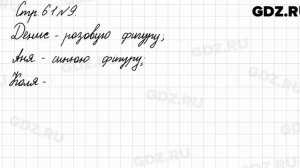 Стр. 61 №9.
GDZ.RU
Денис - розовую фигуру;
Аня - синюю фигуру;
Коля -
GDZ.RU